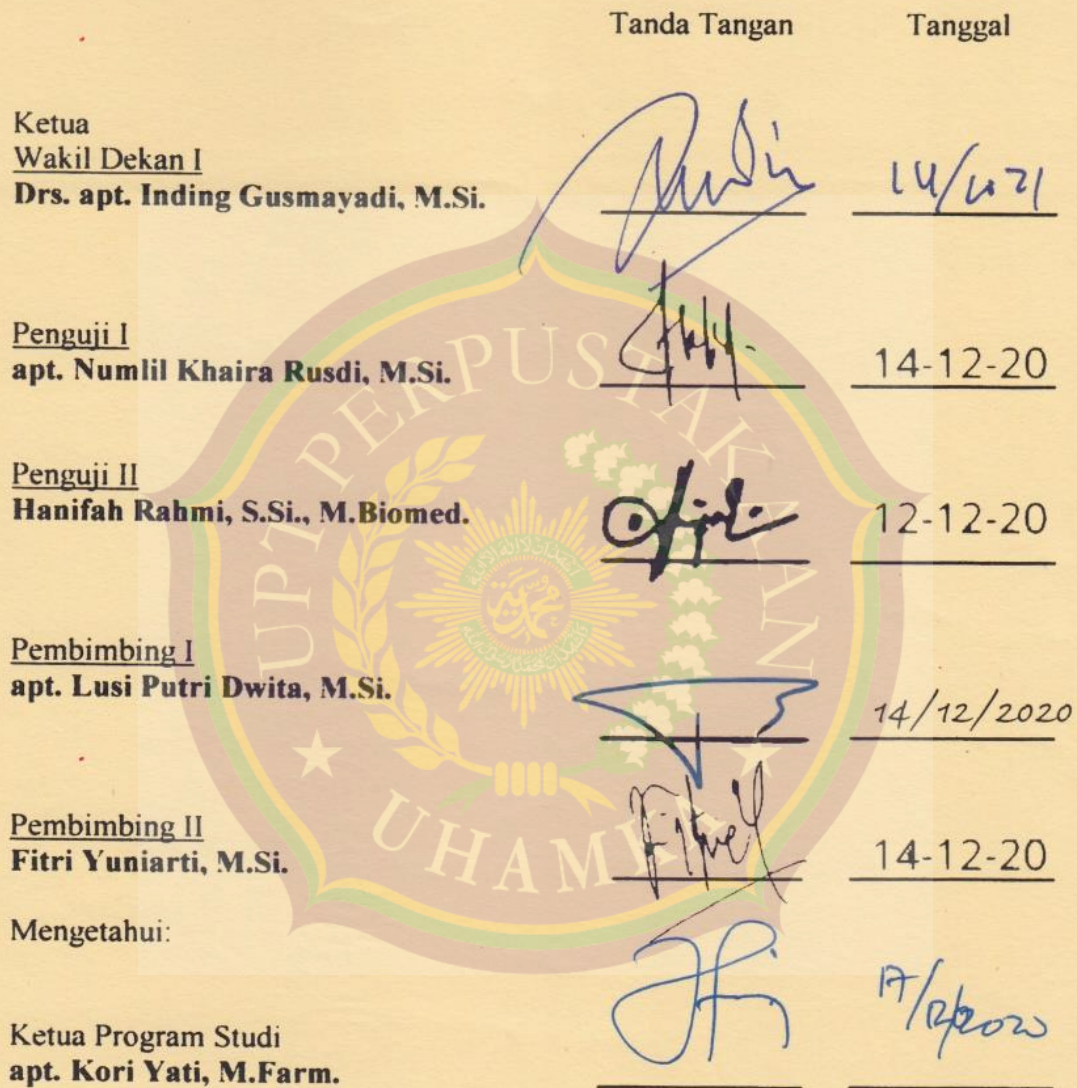 Tanda Tangan Tanggal
Ketua
Wakil Dekan I
Drs. apt. Inding Gusmayadi, M.Si.
Penguji I
apt. Numlil Khaira Rusdi, M.Si. 14-12-20
Penguji II
Hanifah Rahmi, S.Si., M.Biomed. 12-12-20
Pembimbing I
apt. Lusi Putri Dwita, M.Si. 14/12/2020
Pembimbing II
Fitri Yuniarti, M.Si. 14-12-20
Mengetahui:
17/12/2020
Ketua Program Studi
apt. Kori Yati, M.Farm.
UPT PERPUSTAKAAN
UHAMKA